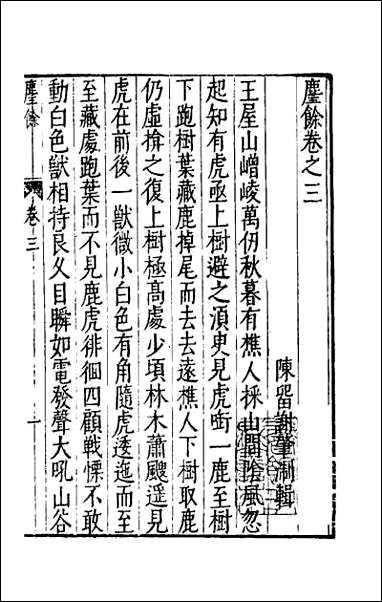 麈餘卷之三
陳留謝肇淛輯
王屋山嶒崚萬仞秋暮有樵人採山間陰風忽
起知有虎亟上樹避之湏臾見虎啣一鹿至樹
下跑樹葉藏鹿掉尾而去去遠樵人下樹取鹿
仍虛揜之復上樹極髙處少頃林木蕭颼遥見
虎在前後一獸微小白色有角隨虎逶迤而至
至藏處跑葉而不見鹿虎徘徊四顧戰慄不敢
動白色獸相持良久目瞬如電發聲大吼山谷
麈餘
卷三
一